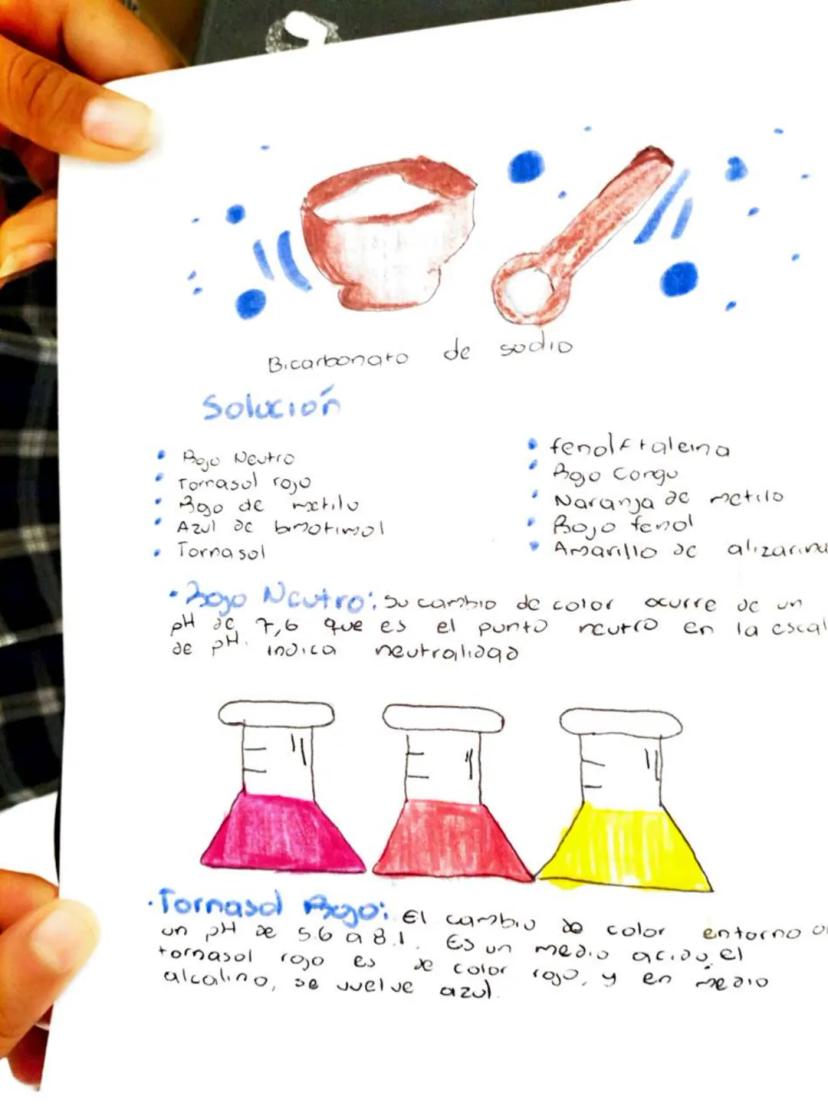 Bicarbonato de sodio
Solución
• Rojo Neutro
• Tornasol rojo
• Rojo de metilo
• Azul de bmotimol
• Tornasol
• fenolftaleina
• Rojo Congo
• Naranja de metilo
• Rojo fenol
• Amarillo de alizarina
• Rojo Neutro: Su cambio de color ocurre de un
pH de 7,6 que es el punto neutro en la escal
de pH. indica neutralidad
• Tornasol Rojo: El cambio de color entorno
un pH de 5.6 a 8.1. Es un medio acido, el
tornasol rojo es de color rojo, y en medio
alcalino, se vuelve azul.